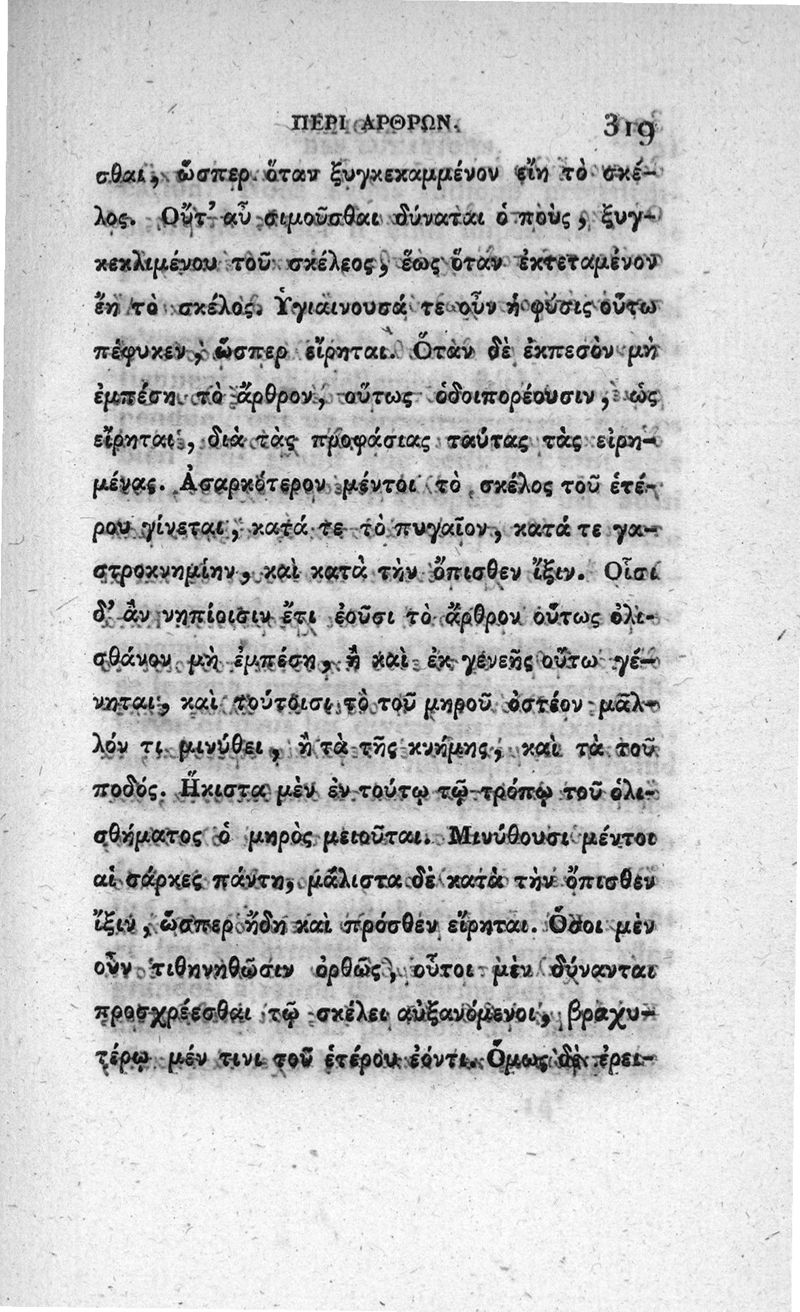 ΠΕΡΙ ΑΡΘΡΩΝ. 319
σθαι, ὥσπερ ὅταν ξυγκεκαμμένον εἴη τὸ σκέ-
λος. Οὔτ' αὖ σιμοῦσθαι δύναται ὁ ποὺς, ξυγ-
κεκλιμένου τοῦ σκέλεος, ἕως ὅταν ἐκτεταμένον
ἔη τὸ σκέλος. Ὑγιαινουσά τε οὖν ἡ φύσις οὕτω
πέφυκεν, ὥσπερ εἴρηται. Ὅταν δὲ ἐκπεσὸν μὴ
ἐμπέσῃ τὸ ἄρθρον, οὕτως ὁδοιπορέουσιν, ὡς
εἴρηται, διὰ τὰς προφάσιας ταύτας τὰς εἰρη-
μένας. Ἀσαρκότερον μέντοι τὸ σκέλος τοῦ ἑτέ-
ρου γίνεται, κατά τε τὸ πυγαῖον, κατά τε γα-
στροκνημίην, καὶ κατὰ τὴν ὄπισθεν ἴξιν. Οἷσι
δ' ἂν νηπίοισιν ἔτι ἐοῦσι τὸ ἄρθρον οὕτως ὀλι-
σθάνον μὴ ἐμπέσῃ, ἢ καὶ ἐκ γενεῆς οὕτω γέ-
νηται, καὶ τούτοισι τὸ τοῦ μηροῦ ὀστέον μᾶλ-
λόν τι μινύθει, ἢ τὰ τῆς κνήμης, καὶ τὰ τοῦ
ποδός. Ἥκιστα μὲν ἐν τούτῳ τῷ τρόπῳ τοῦ ὀλι-
σθήματος ὁ μηρὸς μειοῦται. Μινύθουσι μέντοι
αἱ σάρκες πάντη, μάλιστα δὲ κατὰ τὴν ὄπισθεν
ἴξιν, ὥσπερ ἤδη καὶ πρόσθεν εἴρηται. Ὅσοι μὲν
οὖν τιθηνηθῶσιν ὀρθῶς, οὗτοι μὲν δύνανται
προσχρέεσθαι τῷ σκέλει αὐξανόμενοι, βραχυ-
τέρῳ μέν τινι τοῦ ἑτέρου ἐόντι. Ὅμως δὲ ἐρει-